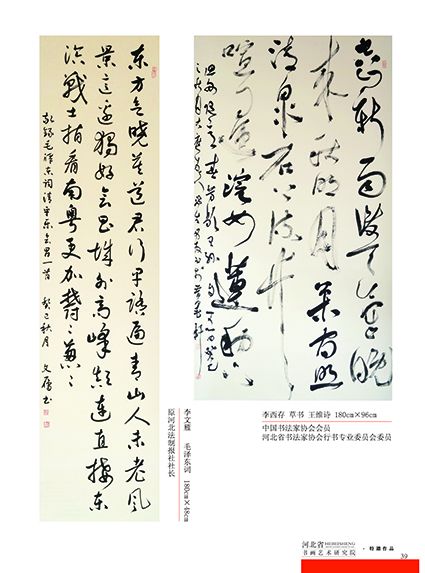 东方欲晓莫道君行早踏遍青山人未老风
景这边独好会昌城外高峰颠连直接东
溟战士指看南粤更加郁々葱々
敬录毛泽东词清平乐会昌一首 癸巳秋月 文雁书
空山新雨后天气晚
来秋明月松间照
清泉石上流竹
喧归浣女莲动下
李文雁 毛泽东词 180cm×48cm
原河北法制报社社长
李西存 草书 王维诗 180cm×96cm
中国书法家协会会员
河北省书法家协会行书专业委员会委员
河北省HEBEISHENG
书画艺术研究院 · 特邀作品
39